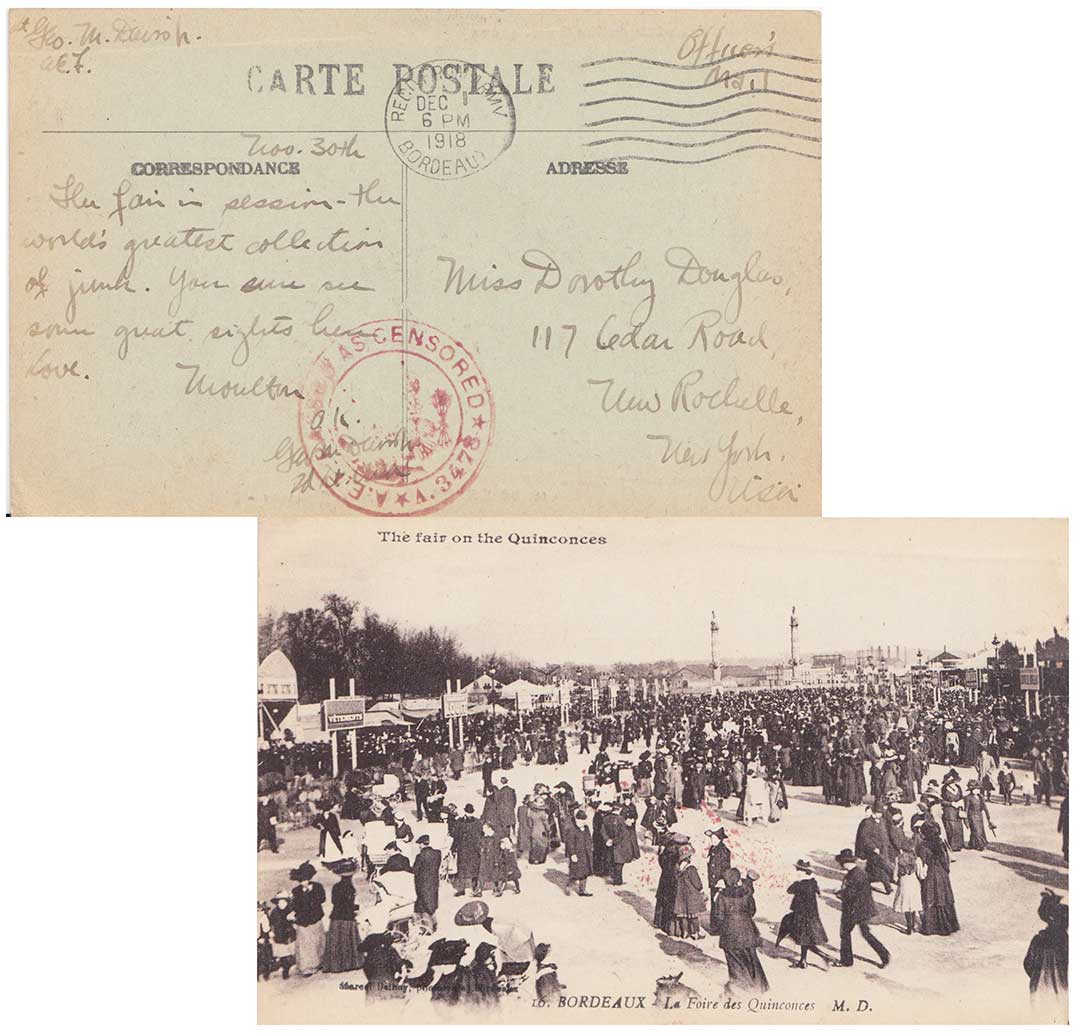 Geo. M.
A.E.F.
Officer's
Mail
CARTE POSTALE
DEC 1
6 PM
1918
BORDEAUX
Nov. 30th
CORRESPONDANCE
ADRESSE
The fair in session - the
world's greatest collection
of junk. You sure see
some great sights here
Love.
Moulton
Miss Dorothy Douglas,
117 Cedar Road,
New Rochelle,
New York.
USA
AS CENSORED
A.E.
O.K.
The fair on the Quinconces
VÊTEMENTS
16. BORDEAUX - La Foire des Quinconces M. D.